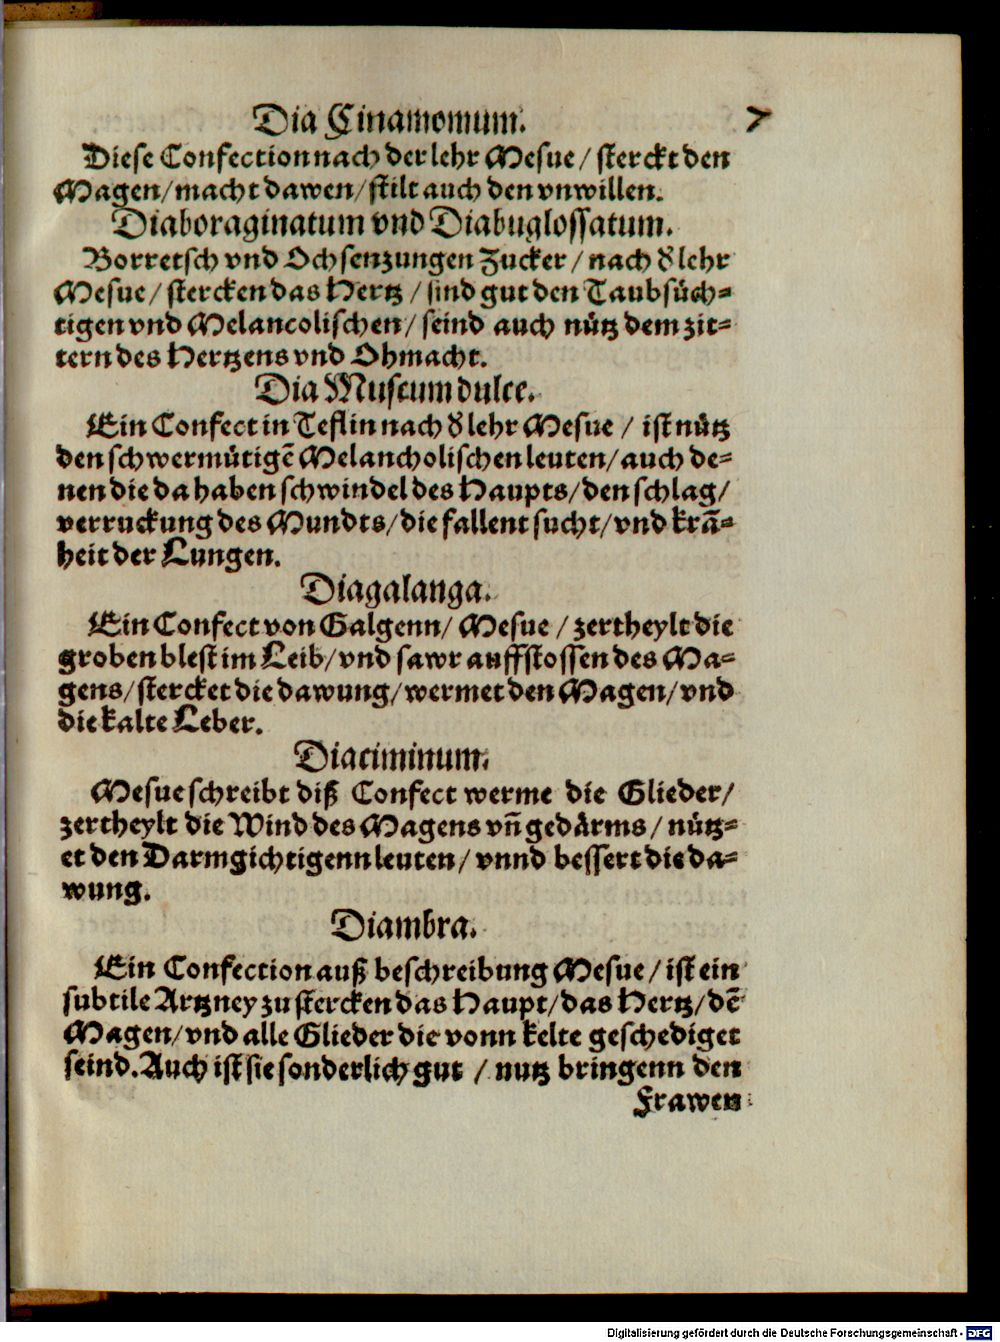 Dia Cinamomum. 7
Diese Confection nach der lehr Mesue / sterckt den
Magen/macht dawen/stilt auch den vnwillen.
Diaboraginatum vnd Diabuglossatum.
Borretsch vnd Ochsenzungen Zucker / nach d' lehr
Mesue/ stercken das Hertz / sind gut den Taubsüch⸗
tigen vnd Melancolischen/ seind auch nütz dem zit⸗
tern des Hertzens vnd Ohmacht.
Dia Muscum dulce.
Ein Confect in Teflin nach d' lehr Mesue / ist nütz
den schwermütigẽ Melancholischen leuten/auch de⸗
nen die da haben schwindel des Haupts/den schlag/
verruckung des Mundts/die fallent sucht/vnd krã⸗
heit der Lungen.
Diagalanga.
Ein Confect von Galgenn/ Mesue / zertheylt die
groben blest im Leib/vnd sawr auffstossen des Ma⸗
gens/stercket die dawung/wermet den Magen/vnd
die kalte Leber.
Diaciminum.
Mesue schreibt diß Confect werme die Glieder/
zertheylt die Wind des Magens vñ gedärms/ nütz⸗
et den Darmgichtigenn leuten/ vnnd bessert die da⸗
wung.
Diambra.
Ein Confection auß beschreibung Mesue/ist ein
subtile Artzney zu stercken das Haupt/das Hertz/dẽ
Magen/vnd alle Glieder die vonn kelte geschediget
seind. Auch ist sie sonderlich gut / nutz bringenn den
Frawen
Digitalisierung gefördert durch die Deutsche Forschungsgemeinschaft - DFG